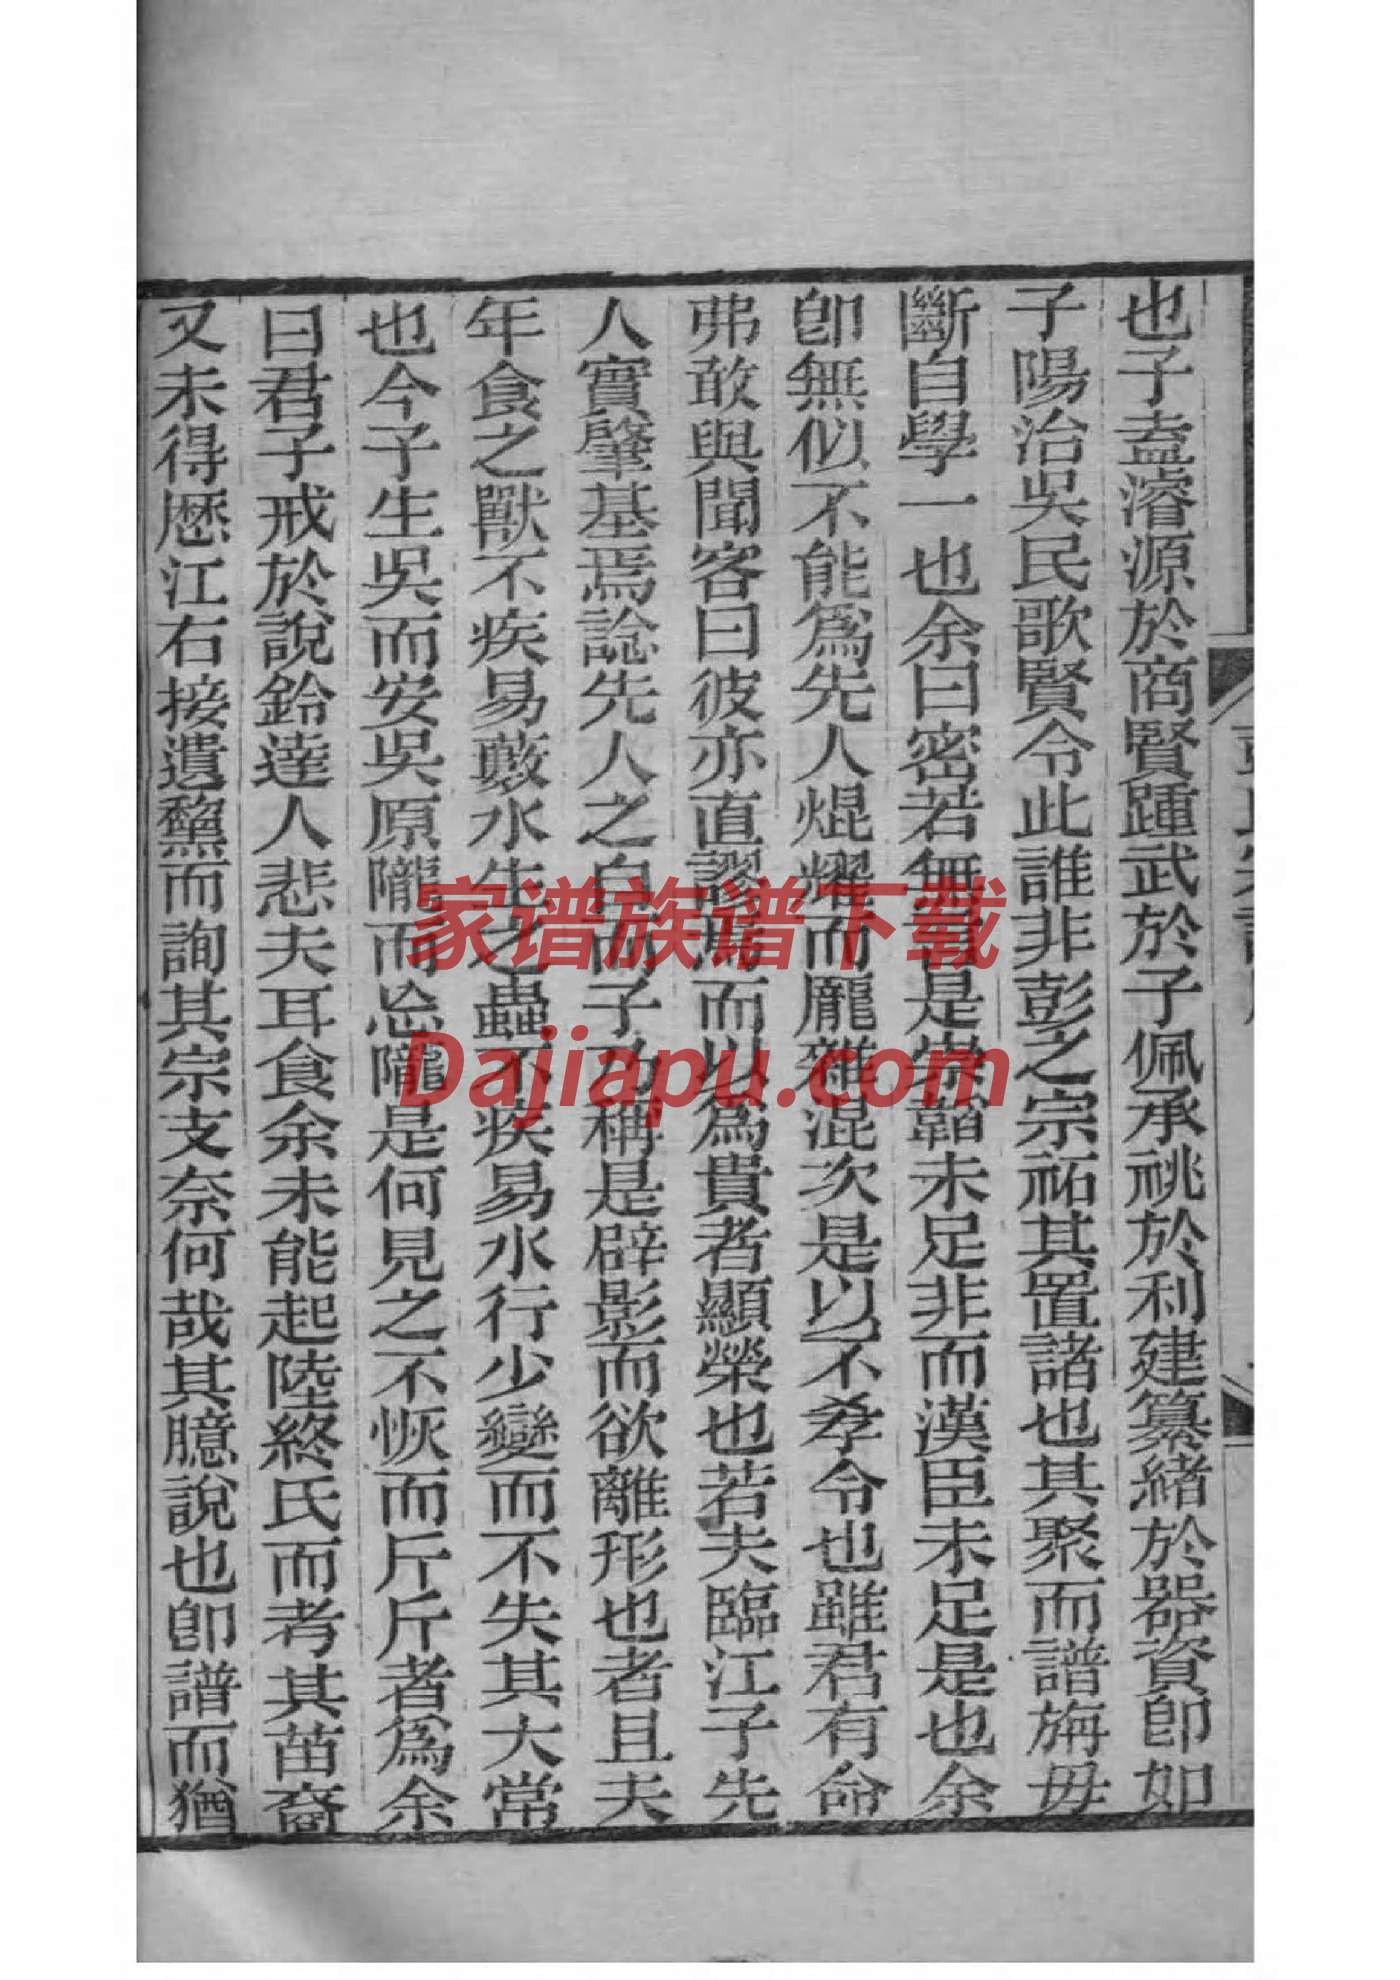 也子盍濬源於商賢踵武於子佩承祧於利建纂緒於器資卽如
子陽治吳民歌賢令此誰非彭之宗祏其置諸也其聚而譜旃毋
斷自學一也余曰密若無目是崇韜未足非而漢臣未足是也余
卽無似不能爲先人焜耀而龎雜混次是以不孝令也雖君有命
弗敢與聞客曰彼亦直謬焉而以爲貴者顯榮也若夫臨江子先
人實肇基焉諗先人之自而子乃稱是辟影而欲離形也者且夫
年食之獸不疾易藪水生之蟲不疾易水行少變而不失其大常
也今子生吳而安吳原隴而忩隴是何見之不恢而斤斤者爲余
曰君子戒於說鈴達人悲夫耳食余未能起陸終氏而考其苗裔
又未得歷江右接遺黧而詢其宗支奈何哉其臆說也卽譜而猶
家谱族谱下载
Dajiapu.com